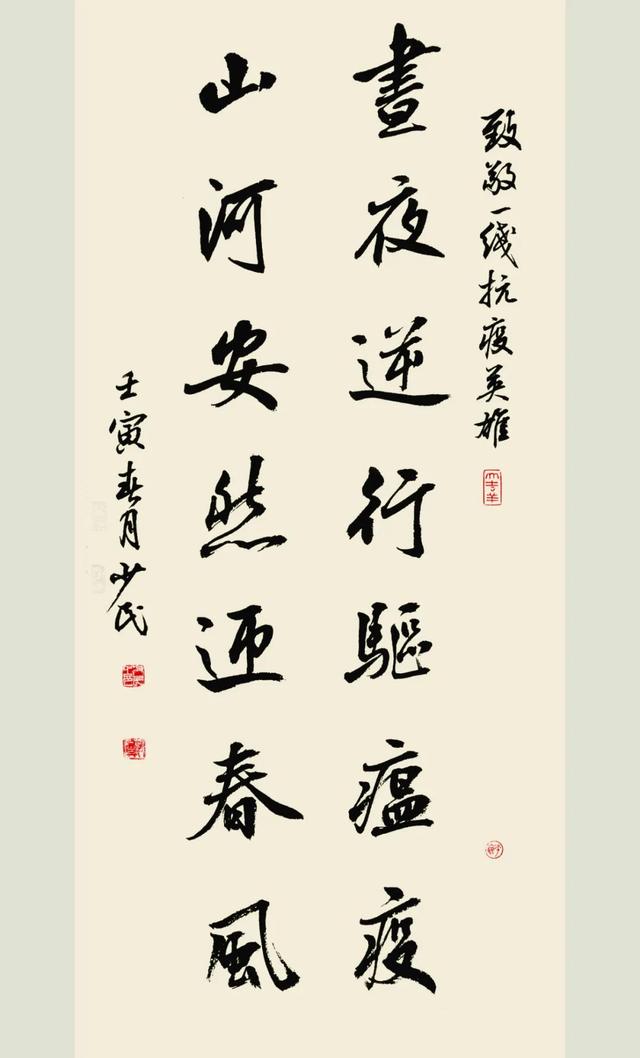 致敬一线抗疫英雄
晝夜逆行驅瘟疫
山河安然迎春風
壬寅春月少民